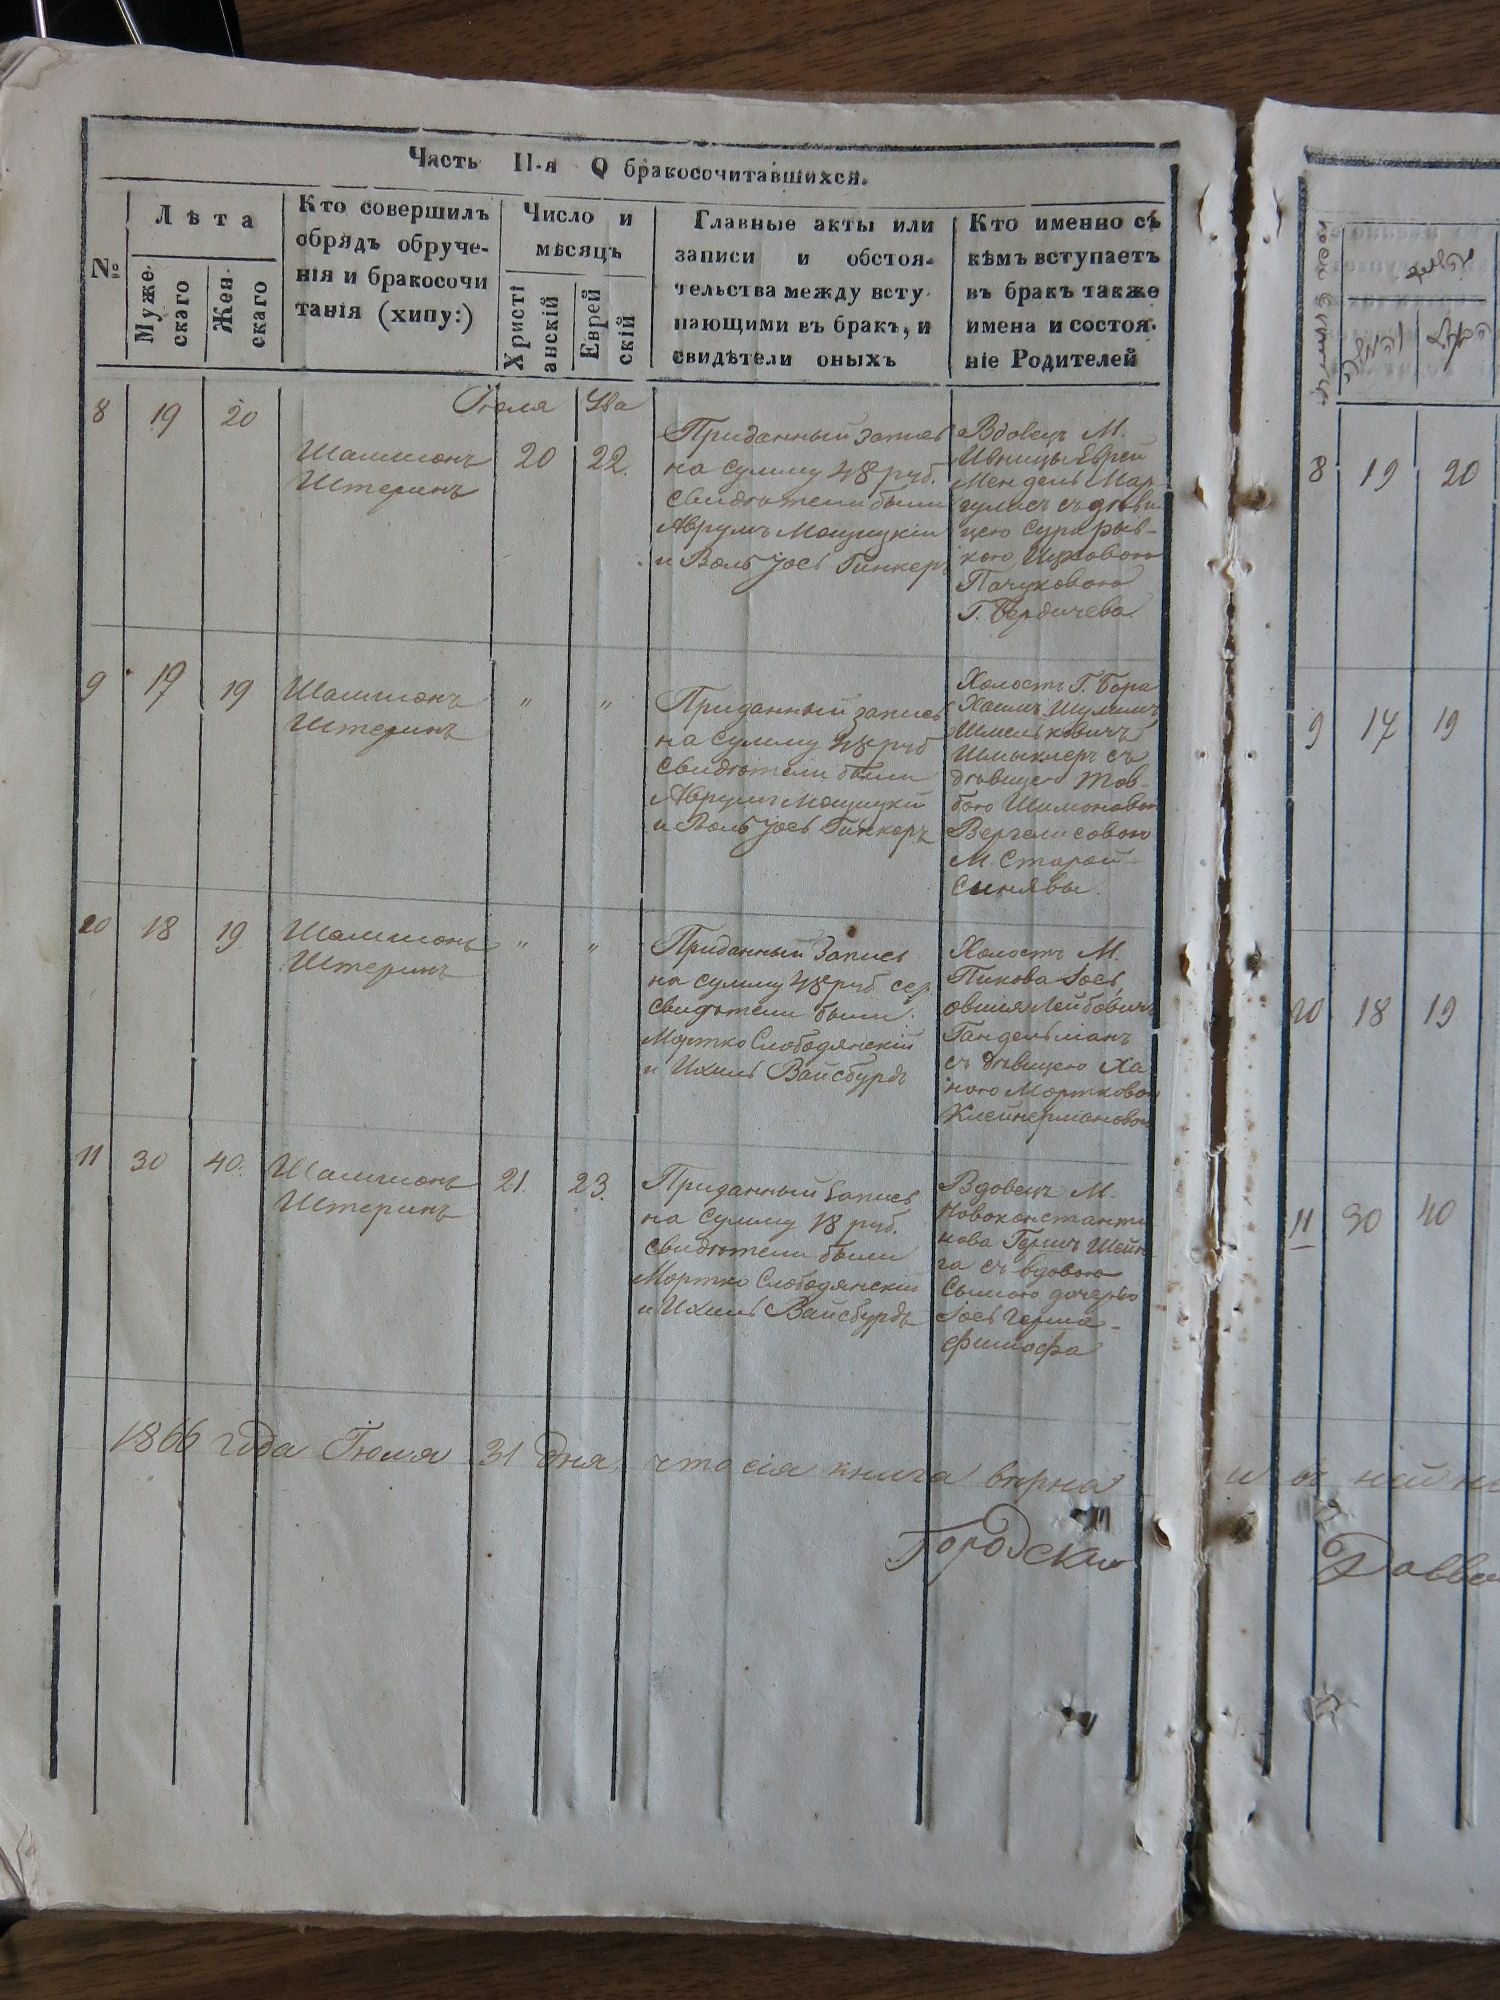 Часть II-я О бракосочитавшихся.
№
Лѣта
Мужескаго
Женскаго
Кто совершилъ
обрядъ обруче-
нія и бракосочи
танія (хипу:)
Число и
мѣсяцъ
Христіанскій
Еврейскій
Главные акты или
записи и обстоя-
тельства между всту
пающими въ бракъ, и
свидѣтели оныхъ
Кто именно съ
кѣмъ вступаетъ
въ бракъ также
имена и состоя-
ніе Родителей
Іюля Ава
8 19 20
Шамшонъ
Штеринъ
20 22.
Приданный запись
на сумму 48 руб.
свидѣтели были
Аврумъ Мощицкій
и Воль Іось Гинкеръ
Вдовецъ М.
Ивницы Еврей
Мендель Мар
гулисъ съ дѣви
цею Сура рыв-
кою Ицковою
Пачуковою
Г. Бердичева
9 17 19
Шамшонъ
Штеринъ
" "
Приданный запись
на сумму 48 руб
свидѣтели были
Аврумъ Мощицкій
и Воль Іось Гинкеръ
Холостъ Г. Бара
Хаимъ Шулимъ
Шмельковичъ
съ
дѣвицею Тов-
бою Шимоновою
Вергелисовою
М. Старой-
Синявы.
10 18 19
Шамшонъ
Штеринъ
" "
Приданный Запись
на сумму 48 руб сер.
свидѣтели были.
Мортко Слободянскій
и Ихиль Вайсбурдъ
Холостъ М.
Пикова Іось
овшія Лейбовичъ
Гандельманъ
съ дѣвицею Ха
ною Мортковою
Клейнермановою
11 30 40.
Шамшонъ
Штеринъ
21. 23.
Приданный запись
на сумму 18 руб.
свидѣтели были
Мортко Слободянскій
и Ихиль Вайсбурдъ
Вдовецъ М.
Новоконстанти
нова Гершъ
съ вдовою
дочерью
Іось Герша-
1866 года Іюля 31 дня, что сія книга вѣрна и въ ней
Городскій
8 19 20
9 17 19
10 18 19
11 30 40